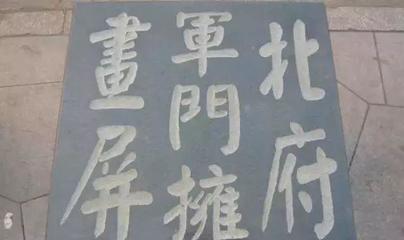 北府
軍門擁
畫屏